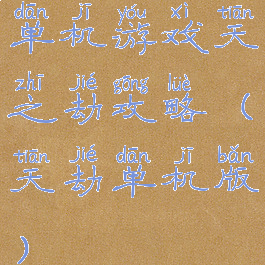 dān jī yóu xì tiān
单机游戏天
zhī jié gōng lüè
之劫攻略(
tiān jié dān jī bǎn
天劫单机版
)